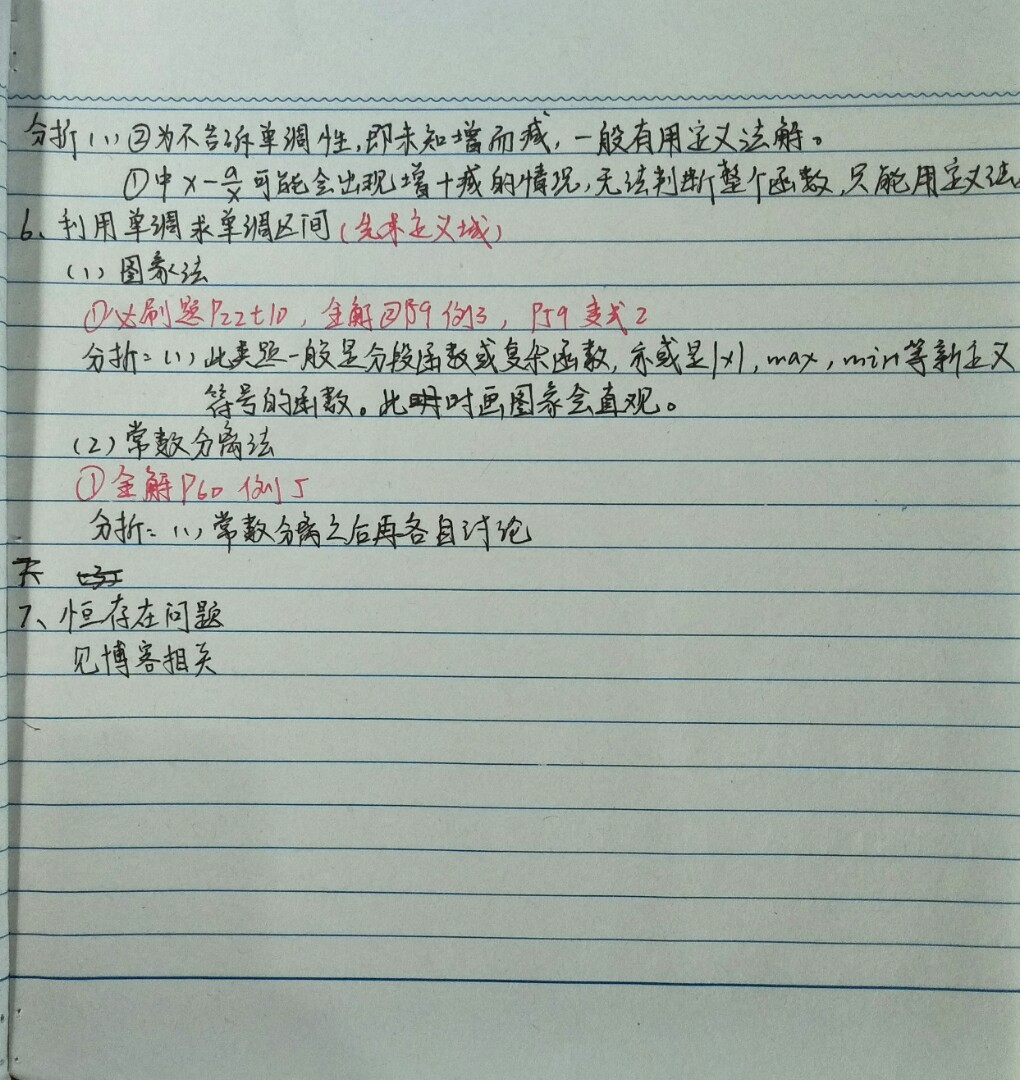 分折(1)②为不告诉单调性,即未知增而减,一般有用定义法解。
①中x-a/x可能会出现增+减的情况,无法判断整个函数,只能用定义法。
6、利用单调求单调区间(先求定义域)
(1)图象法
①必刷题P22t10,全解②P59例3,P59变式2
分折:(1)此类题一般是分段函数或复杂函数,亦或是|x|,max,min等新定义
符号的函数。此时画图象会直观。
(2)常数分离法
①全解P60例5
分折:(1)常数分离之后再各自讨论
7、恒存在问题
见博客相关